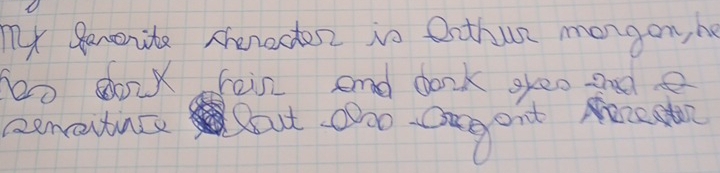 My favorite character is Arthur morgan, he
has dark hair and dark eyes and a
sensitive but also arrogant character